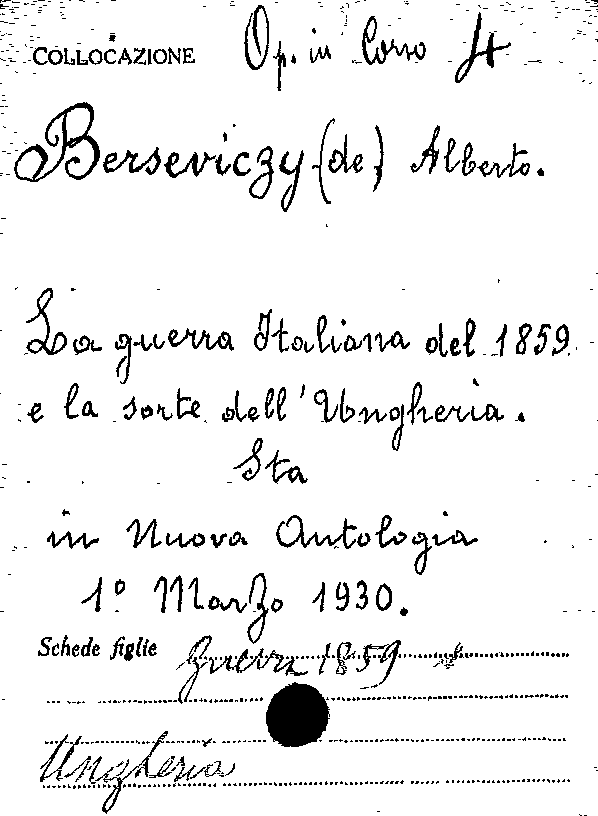 COLLOCAZIONE Op. in Corso 4
Berseviczy (de) Alberto.
La guerra Italiana del 1859
e la sorte dell'Ungheria.
Sta
in Nuova Antologia
1° Marzo 1930.
Schede figlie Guerra 1859
Ungheria